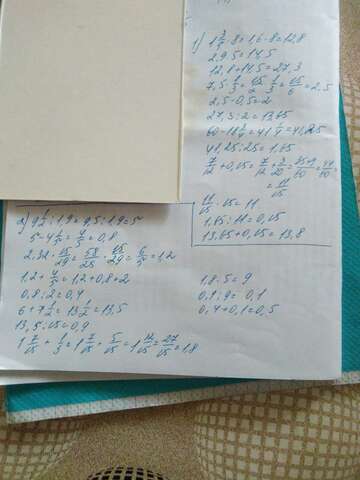 1) 1 3/5 · 8 = 1,6 · 8 = 12,8
2,9 · 5 = 14,5
12,8 + 14,5 = 27,3
7,5 : 1/3 = 15/2 · 1/3 = 15/6 = 2,5
2,5 - 0,5 = 2
27,3 : 2 = 13,65
60 - 18 3/4 = 41 1/4 = 41,25
41,25 : 25 = 1,65
7/12 + 0,15 = 7/12 + 3/20 = 35+9/60 = 44/60 =
= 11/15
11/15 · 15 = 11
1,65 : 11 = 0,15
13,65 + 0,15 = 13,8
2) 9 1/2 : 1,9 = 9,5 : 1,9 = 5
5 - 4 1/5 = 4/5 = 0,8
2,32 · 15/29 = 58/25 · 15/29 = 6/5 = 1,2
1,2 + 4/5 = 1,2 + 0,8 = 2
0,8 : 2 = 0,4
6 + 7 1/2 = 13 1/2 = 13,5
13,5 : 15 = 0,9
1 7/15 + 1/3 = 1 7/15 + 5/15 = 1 12/15 = 27/15 = 1,8
1,8 · 5 = 9
0,9 : 9 = 0,1
0,4 + 0,1 = 0,5